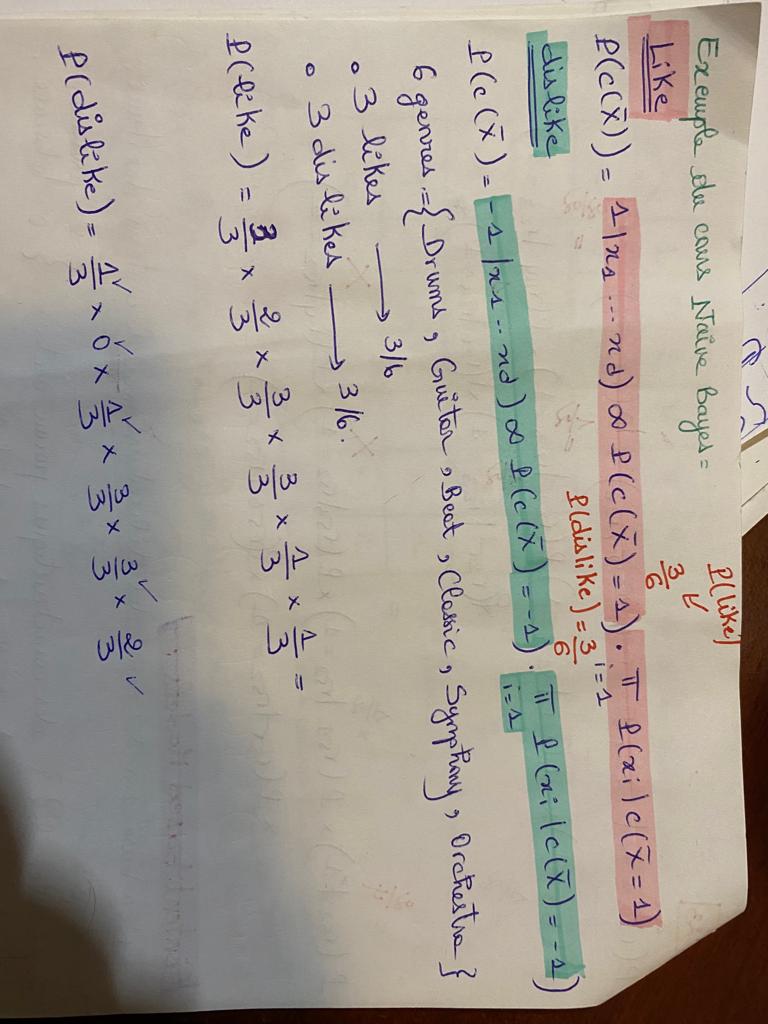 Exemple du cours Naïve Bayes =
P(like)
3/6
Like
P(c(X̄)) = 1 | x1 ... xd) ∞ P(c(X̄) = 1) . π i=1 P(xi | c(X̄ = 1)
P(dislike) = 3/6
dislike
P(c(X̄) = -1 | x1 .. xd) ∞ P(c(X̄) = -1) . π i=1 P(xi | c(X̄) = -1)
6 genres = { Drums, Guitar, Beat, Classic, Symphony, Orchestra }
• 3 likes → 3/6
• 3 dislikes → 3/6.
P(like) = 3/3 × 2/3 × 3/3 × 3/3 × 1/3 × 1/3 =
P(dislike) = 1/3 ✓ × 0 ✓ × 1/3 ✓ × 3/3 × 3/3 ✓ × 2/3 ✓